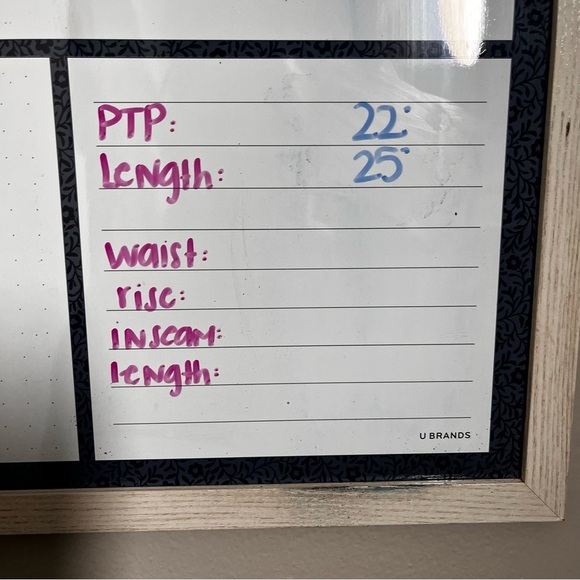 PTP: 22"
Length: 25"
waist:
rise:
inseam:
length:
U BRANDS